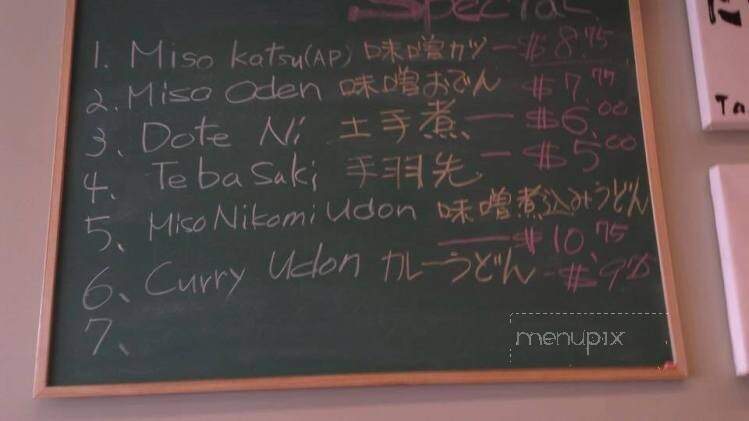 Special
1. Miso Katsu (AP) 味噌カツ — $8.75
2. Miso Oden 味噌おでん $7.75
3. Dote Ni 土手煮 — $6.00
4. Teba Saki 手羽先 — $5.00
5. Miso Nikomi Udon 味噌煮込みうどん
— $10.75
6. Curry Udon カレーうどん - $9
7.
Ta
menupix